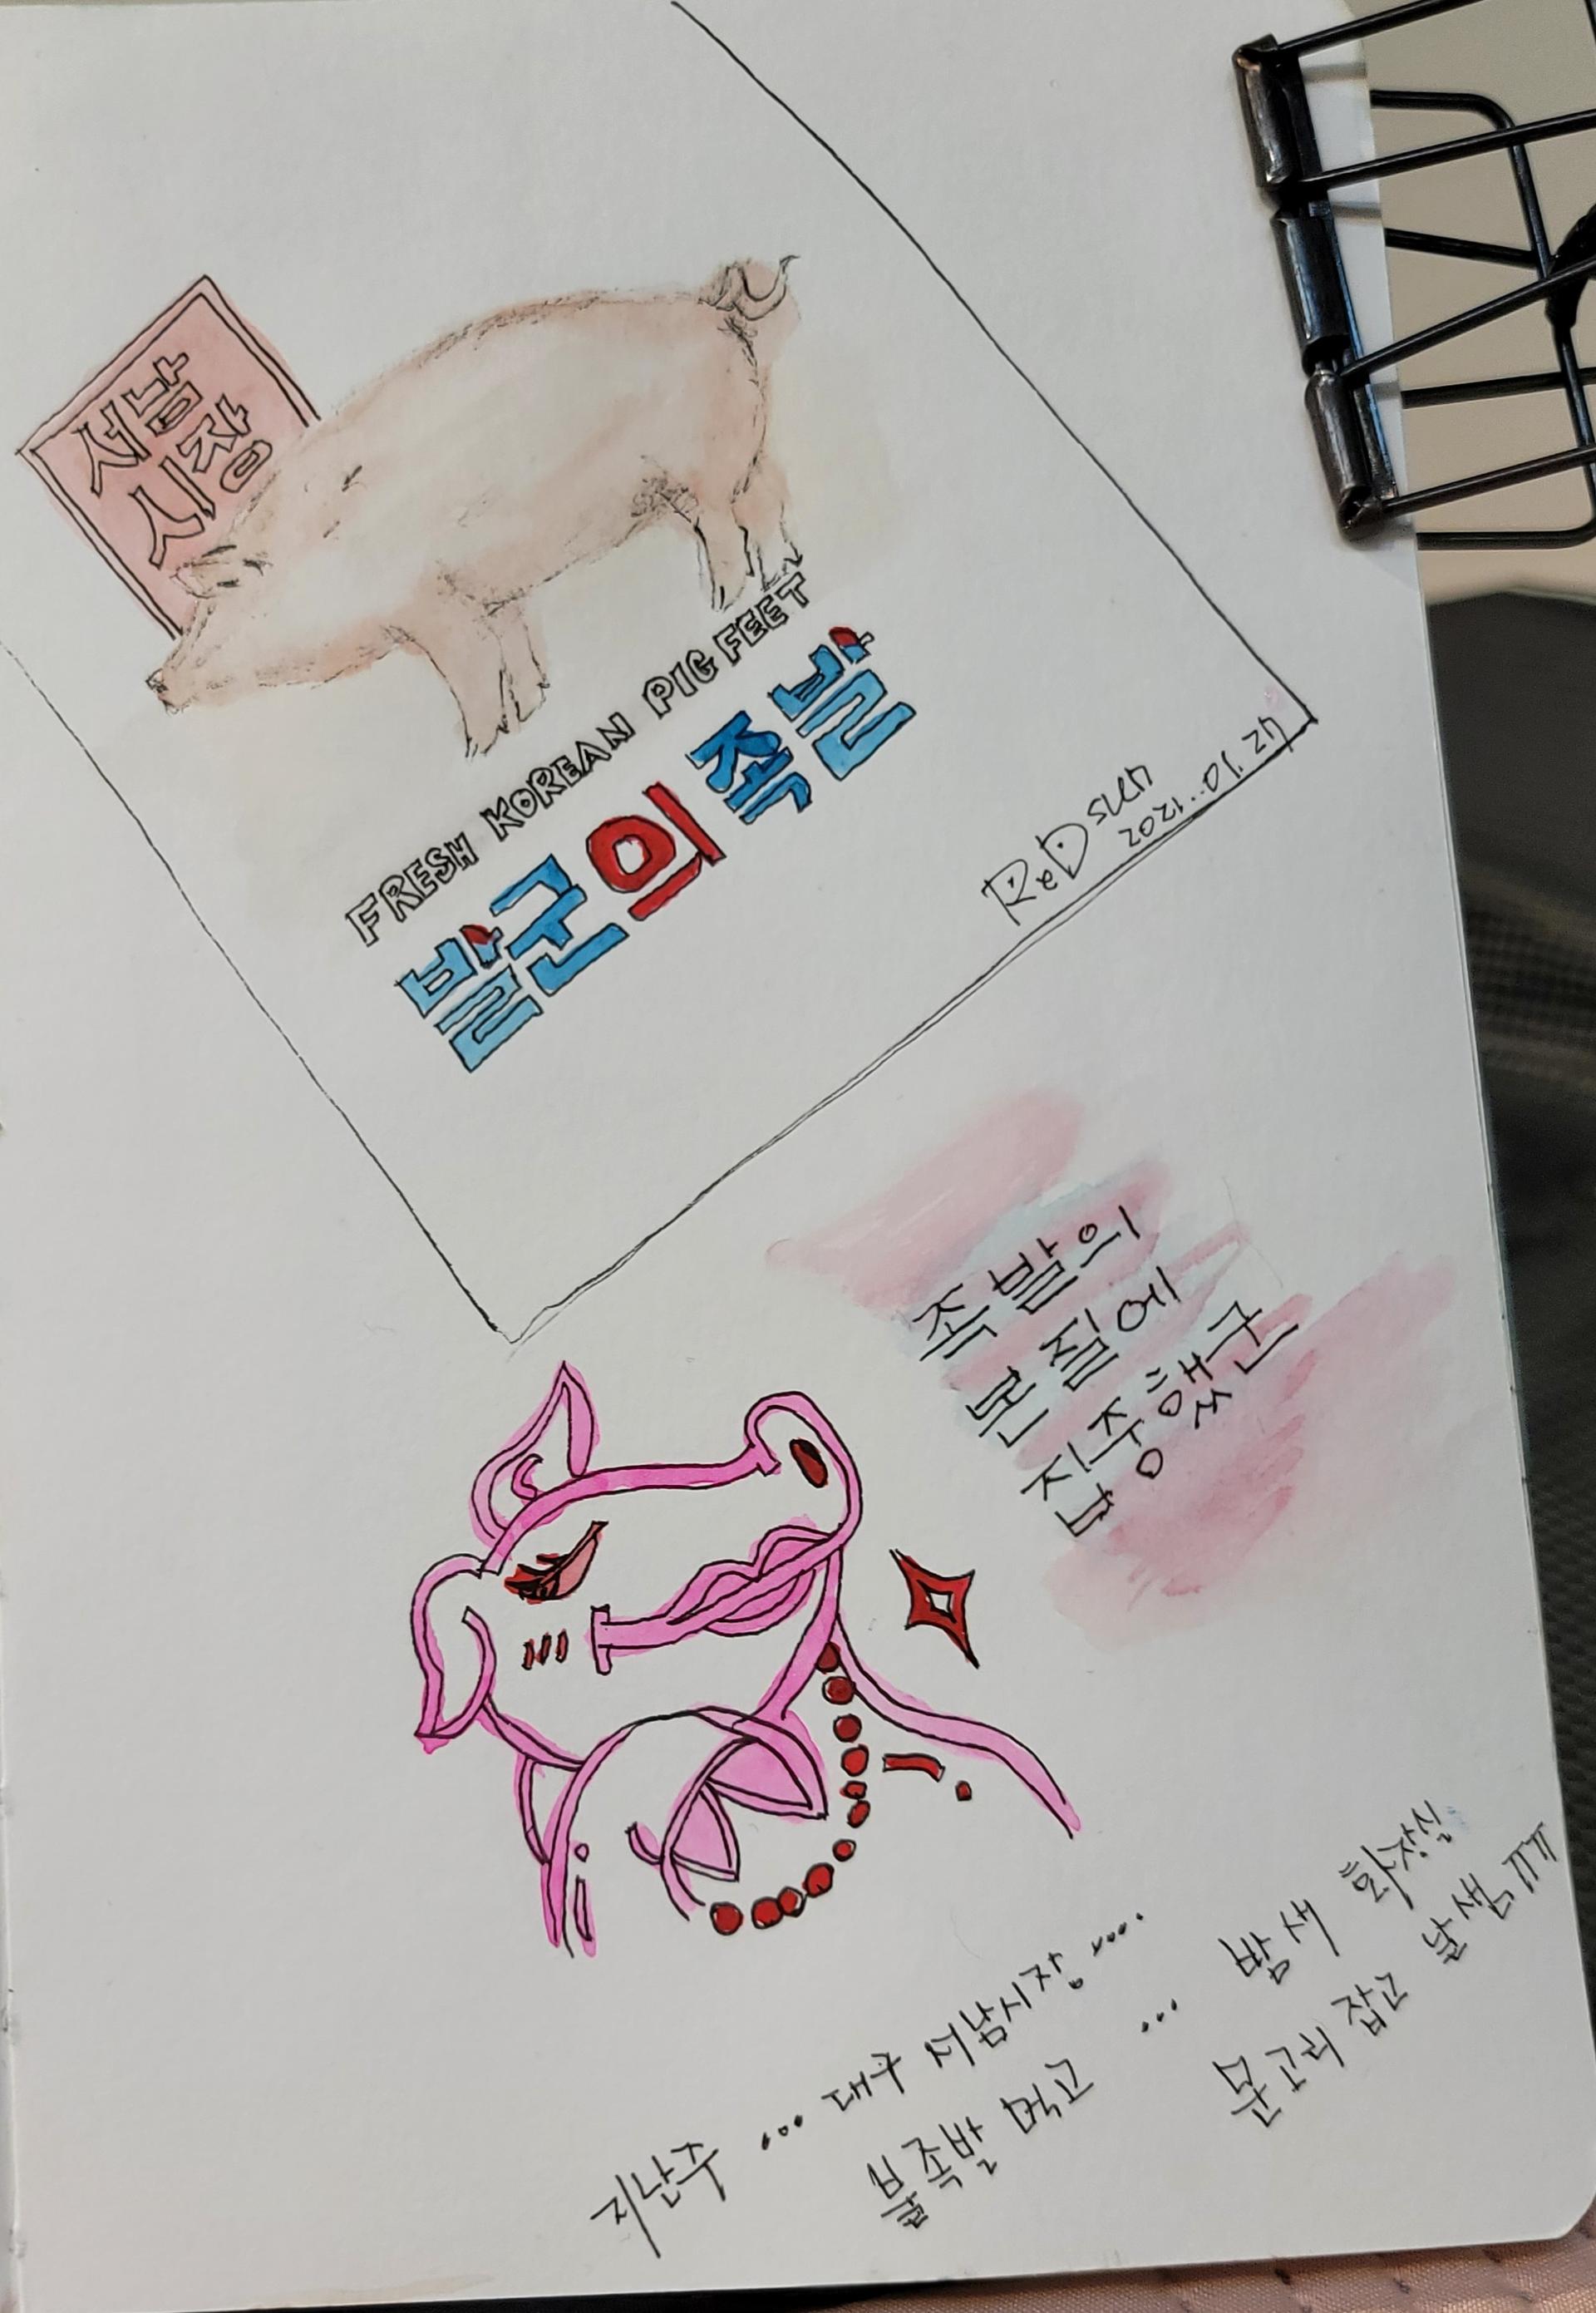 서남
시장
FRESH KOREAN PIG FEET
발군의 족발
ReDsun
2021..01.27
족발의
본질에
집중했군
지난주 ... 대구 서남시장 ....
불족발 먹고 ... 밤새 화장실
문고리 잡고 날샌 ㅠㅠ